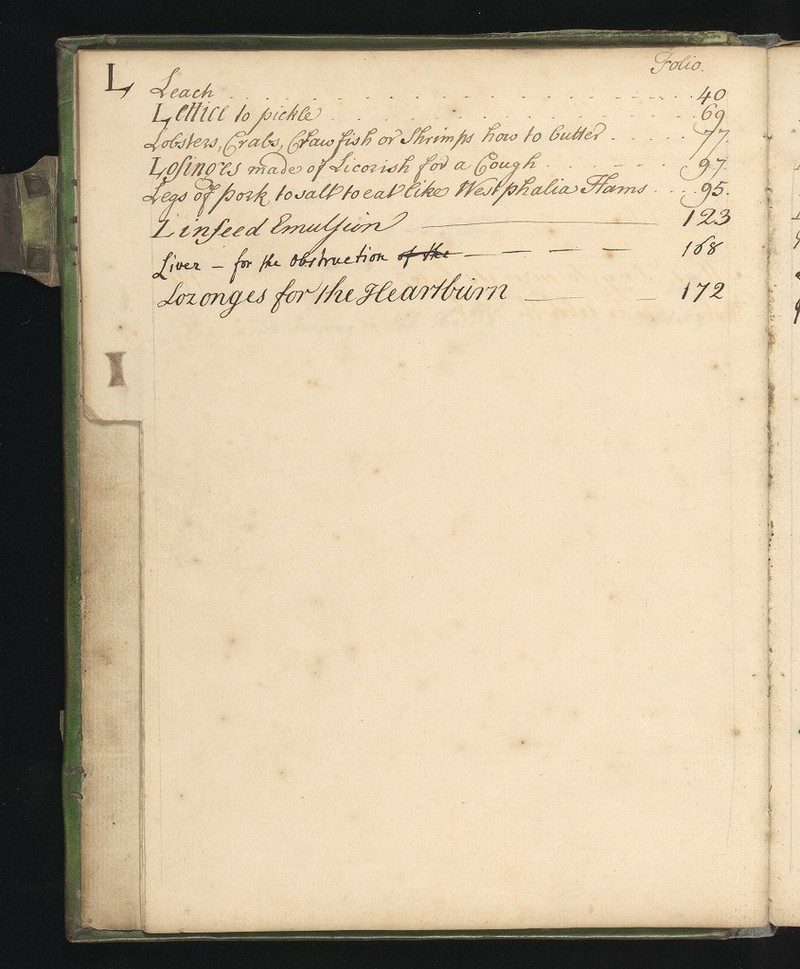 Folio.
L Leach . . . . . . . . . . . . . . . 40
Lettice to pickle . . . . . . . . . . . . 69
Lobsters, Crabs, Crawfish or Shrimps how to butter . . . . . 77
Losinges made of Licorish for a Cough . . . . . . 97.
Legs of pork to salt to eat like Westphalia Hams . . . . 95.
Linseed Emulsion ——— 123
Liver – for the obstruction of the — — — — 168
Lozonges for the Heartburn — — 172
I